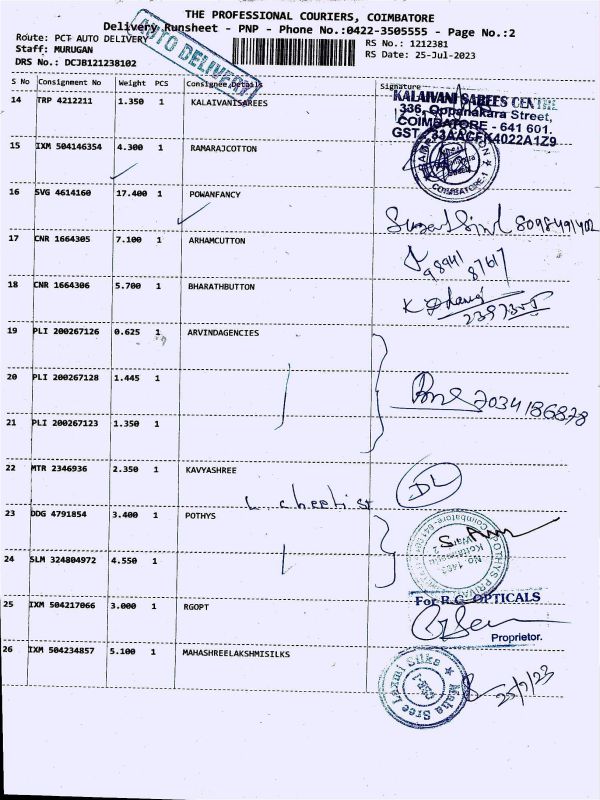 THE PROFESSIONAL COURIERS, COIMBATORE
Delivery Runsheet - PNP - Phone No.:0422-3505555 - Page No.:2
Route: PCT AUTO DELIVERY
RS No.: 1212381
Staff: MURUGAN
RS Date: 25-Jul-2023
DRS No.: DCJB121238102
AUTO DELIVERY
S No Consignment No Weight PCS Consignee Details Signature
14 TRP 4212211 1.350 1 KALAIVANISAREES
KALAIVANI SAREES CENTRE
336, Oppanakara Street,
COIMBATORE - 641 601.
GST 33AACFK4022A1Z9
15 IXM 504146354 4.300 1 RAMARAJCOTTON
COIMBATORE-1
16 SVG 4614160 17.400 1 POWANFANCY
17 CNR 1664305 7.100 1 ARHAMCUTTON
98941
87617
18 CNR 1664306 5.700 1 BHARATHBUTTON
19 PLI 200267126 0.625 1 ARVINDAGENCIES
20 PLI 200267128 1.445 1
7034186878
21 PLI 200267123 1.350 1
22 MTR 2346936 2.350 1 KAVYASHREE
DL
23 DDG 4791854 3.400 1 POTHYS
POTHYS PRIVATE
24 SLM 324804972 4.550 1
25 IXM 504217066 3.000 1 RGOPT
For R.G. OPTICALS
Proprietor.
26 IXM 504234857 5.100 1 MAHASHREELAKSHMISILKS
Maha Sree Laxmi Silks
25/7/23